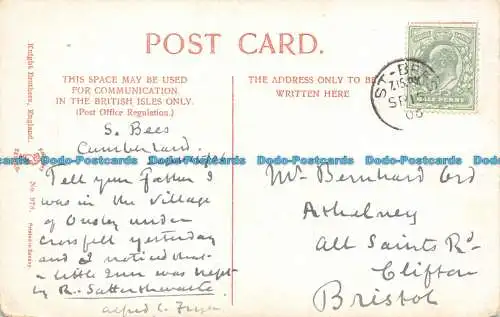 POST CARD.
THIS SPACE MAY BE USED
FOR COMMUNICATION
IN THE BRITISH ISLES ONLY.
(Post Office Regulation.)
THE ADDRESS ONLY TO BE
WRITTEN HERE
S. Bees
Cumberland.
Tell your Father I
was in the village
of Ousby under
Crossfell yesterday
and I noticed that
a little Inn was kept
by R. Satterthwaite
Alfred C. Fryer
Mr Bernhard Ord
Athelney
All Saints Rd
Clifton
Bristol
ST-BEES
SP
06
HALF PENNY
Knight Brothers, England.
No. 978.
Dodo-Postcards Dodo-Postcards Dodo-Postcards Dodo-Postcards Dodo-Postcards Dodo-Postcards